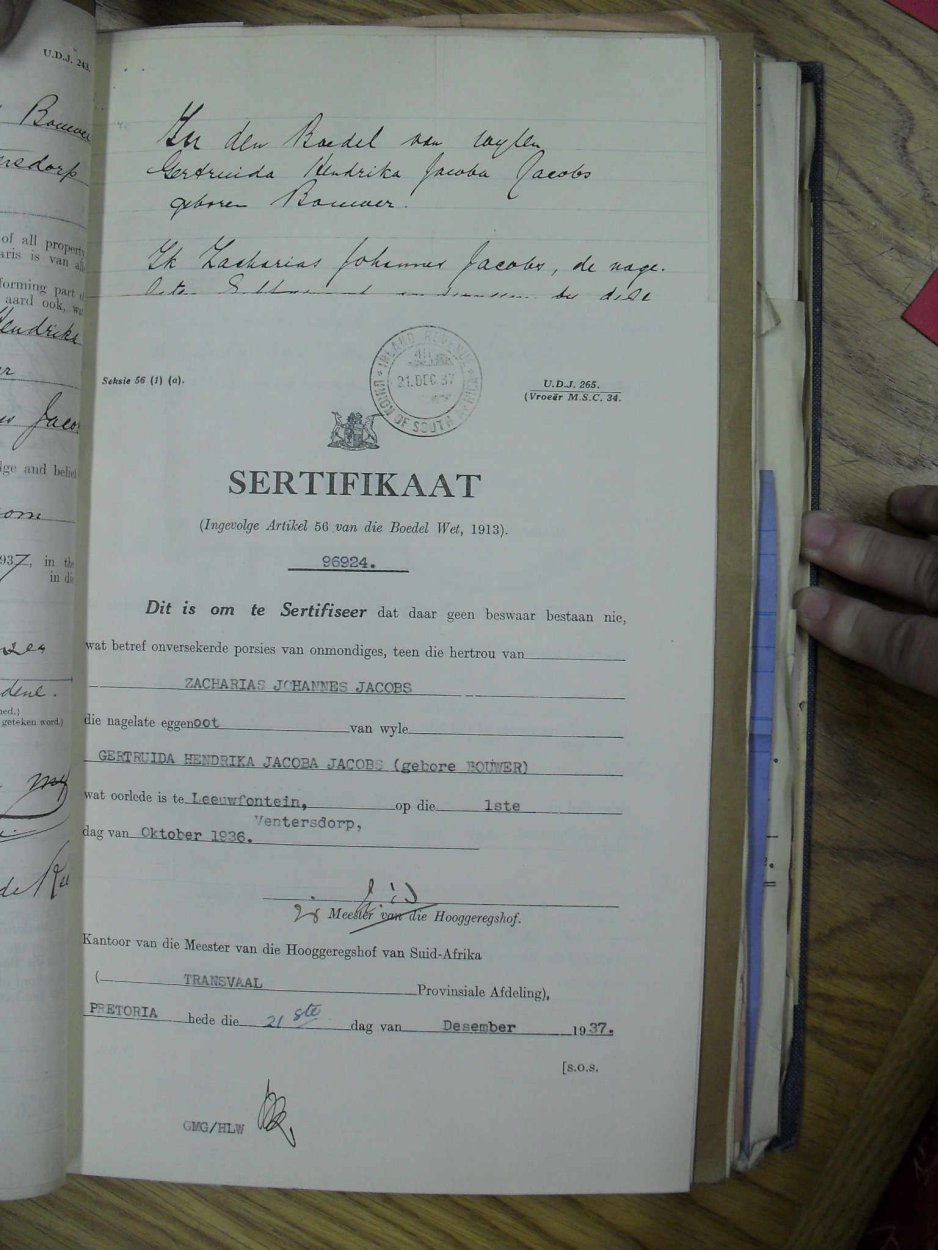 U.D.J. 243.
Bouwer
ersdorp
of all property
aris is van all
forming part
aard ook, wat
Hendrika
er
Jacobs
dge and belief
937, in the
in die
dene.
ned.)
geteken word.)
In den Boedel van wylen
Gertruida Hendrika Jacoba Jacobs
geboren Bouwer.
Ik Zacharias Johannes Jacobs, de nage-
INLAND REVENUE
21.DEC 37
UNION OF SOUTH AFRICA
Seksie 56 (1) (a).
U.D.J. 265.
(Vroeër M.S.C. 34.
SERTIFIKAAT
(Ingevolge Artikel 56 van die Boedel Wet, 1913).
96924.
Dit is om te Sertifiseer dat daar geen beswaar bestaan nie,
wat betref onversekerde porsies van onmondiges, teen die hertrou van
ZACHARIAS JOHANNES JACOBS
die nagelate eggenoot van wyle
GERTRUIDA HENDRIKA JACOBA JACOBS (gebore BOUWER)
wat oorlede is te Leeuwfontein, op die 1ste
Ventersdorp,
dag van Oktober 1936.
Meester van die Hooggeregshof.
Kantoor van die Meester van die Hooggeregshof van Suid-Afrika
( TRANSVAAL Provinsiale Afdeling),
PRETORIA hede die 21ste dag van Desember 1937.
[s.o.s.
GMG/HLW